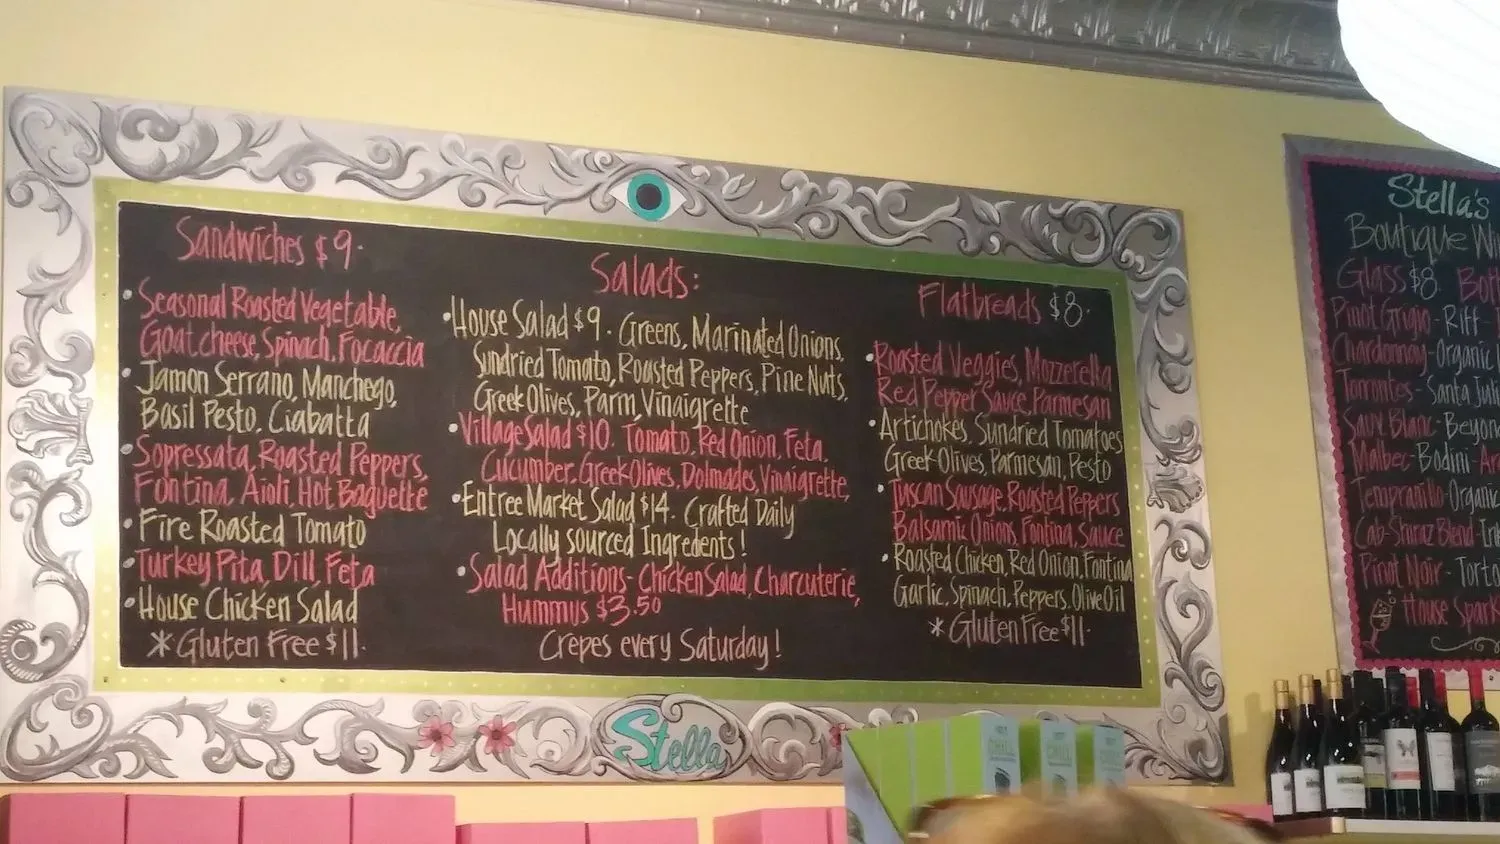 Sandwiches $9.
Seasonal Roasted Vegetable,
Goat cheese, Spinach, Focaccia
Jamon Serrano, Manchego,
Basil Pesto, Ciabatta
Sopressata, Roasted Peppers,
Fontina, Aioli, Hot Baguette
Fire Roasted Tomato
Turkey Pita, Dill, Feta
House Chicken Salad
*Gluten Free $11.
Salads:
House Salad $9. Greens, Marinated Onions,
Sundried Tomato, Roasted Peppers, Pine Nuts,
Greek Olives, Parm, Vinaigrette
Village Salad $10. Tomato, Red Onion, Feta,
Cucumber, Greek Olives, Dolmades, Vinaigrette,
Entree Market Salad $14. Crafted Daily
Locally sourced Ingredents!
Salad Additions - Chicken Salad, Charcuterie,
Hummus $3.50
Crepes every Saturday!
Flatbreads $8.
Roasted Veggies, Mozzerella
Red Pepper Sauce, Parmesan
Artichokes, Sundried Tomatoes
Greek Olives, Parmesan, Pesto
Tuscan Sausage, Roasted Peppers
Balsamic Onions, Fontina, Sauce
Roasted Chicken, Red Onion, Fontina
Garlic, Spinach, Peppers, Olive Oil
*Gluten Free $11.
Stella
Stella's
Boutique Wi
Glass $8. Bot
Pinot Grigio - Riff
Chardonnay - Organic
Torrontes - Santa Juli
Sauv Blanc - Beyon
Malbec - Bodini - Ar
Tempranillo - Organic
Cab-Shiraz Blend - In
Pinot Noir - Torto
House Spark
CHILL